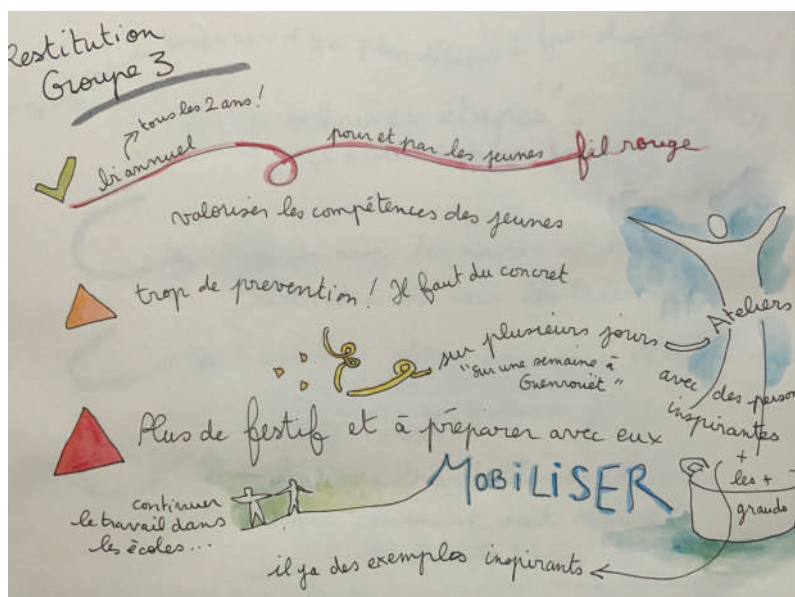 Restitution
Groupe 3
tous les 2 ans !
biannuel
pour et par les jeunes
fil rouge
valoriser les compétences des jeunes
trop de prevention ! Il faut du concret
sur plusieurs jours
"sur une semaine à
Guenrouët"
Ateliers
avec des person
inspirantes
+
les +
grands
Plus de festif et à préparer avec eux
MOBILISER
continuer
le travail dans
les écoles...
il y a des exemples inspirants